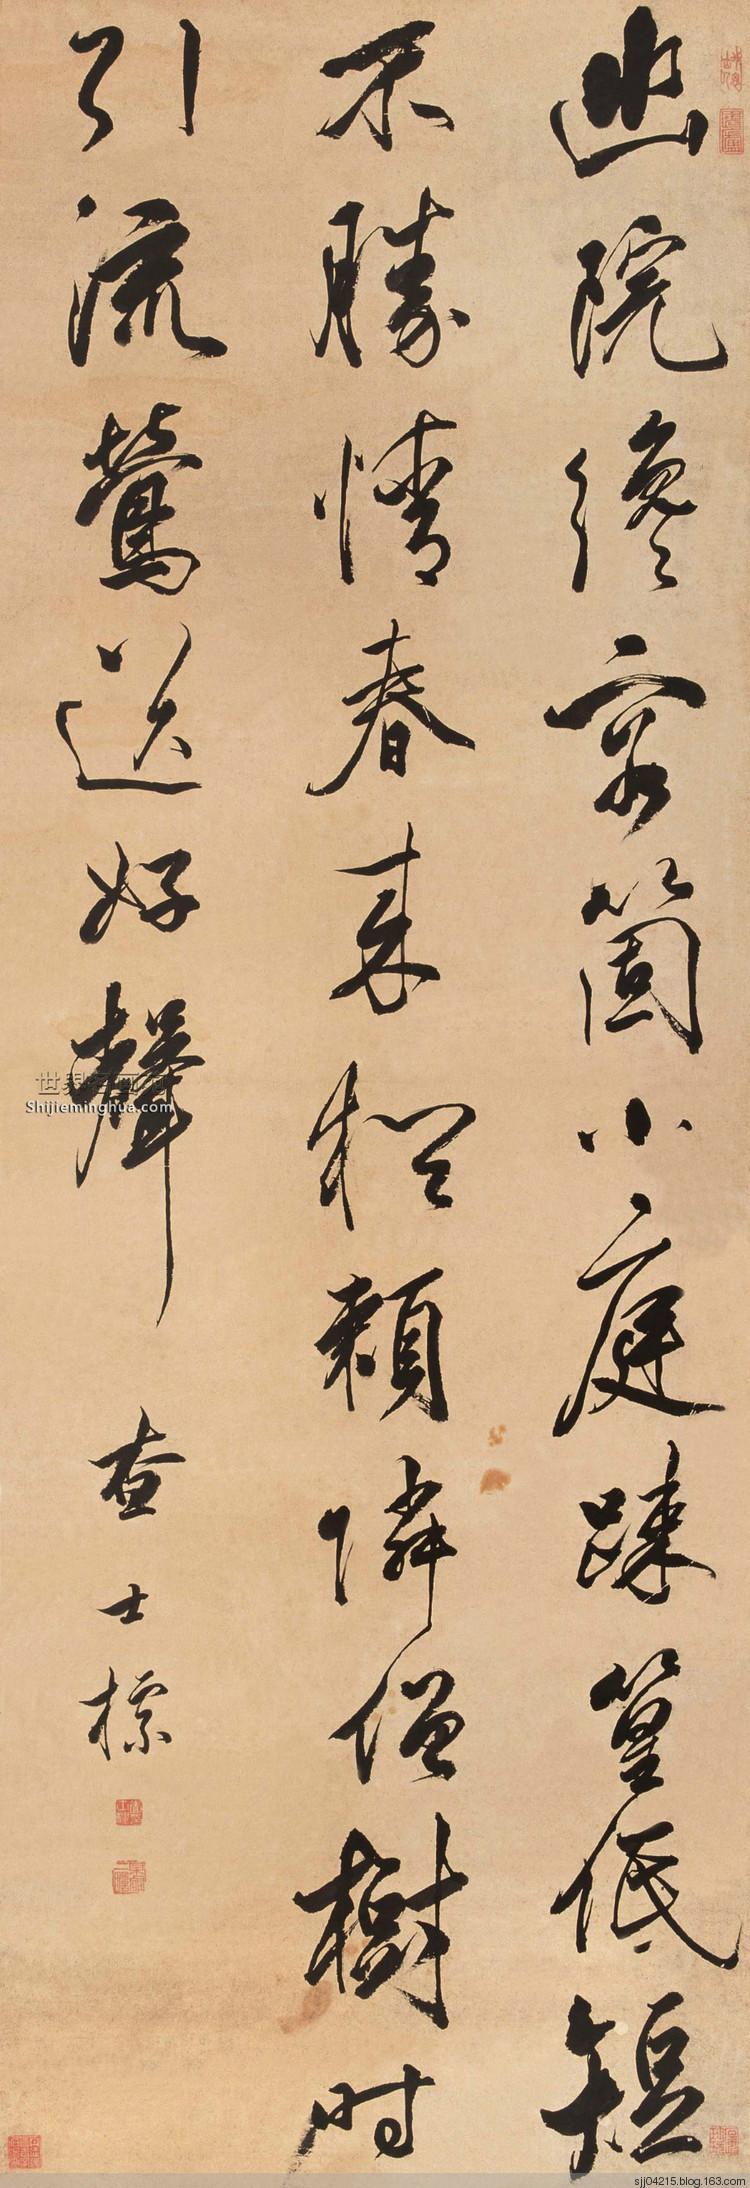 幽院纔容箇小庭踈篁低短
不勝情春來猶賴隣僧樹時
引流鶯送好聲
查士標
世界
Shijieminghua.com
sjj04215.blog.163.com